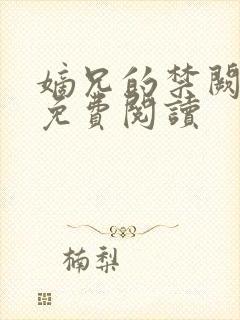 嫡兄的禁闕
免費閱讀
楠梨